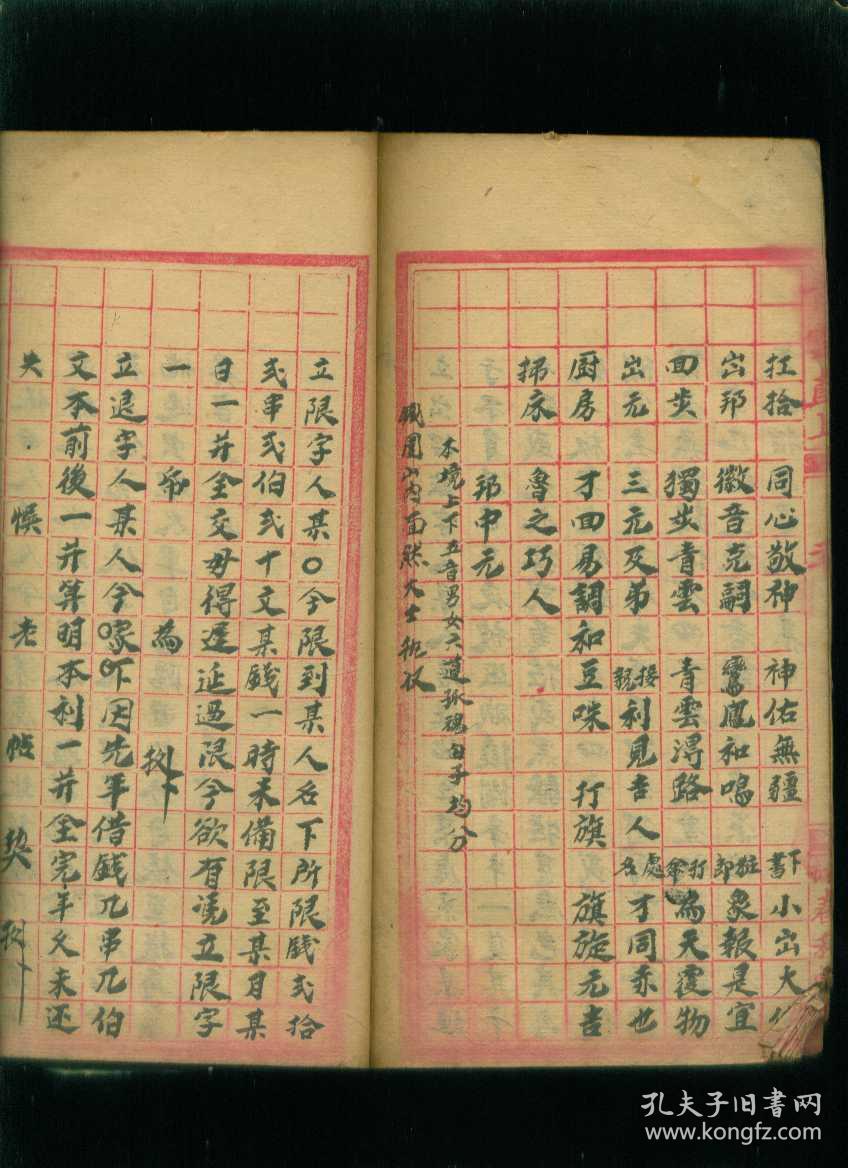 扛抬 同心敬神 神佑無疆 下書 小出大
出邦 徽音克嗣 鸞鳳和鳴 象報是宜
回步 獨步青雲 青雲得路 打傘 為天覆物
出元 三元及弟 接親 利見吉人 才同亦也
厨房 才回易調和豆味 打旗 旗旋元吉
掃床 魯之巧人
邦中元
本境上下五音男女六道孤魂 均分
鐵圍山內面然大士
立限字人某〇今限到某人名下所限錢弍拾
弍串弍伯弍十文某錢一時未備限至某月某
日一并全交毋得遲延過限今欲有凭立限字
一 為
立退字人某人今 因先年借錢几串几伯
文本前後一并算明本利一并全完年久未還
失 悞 老 帖 契
孔夫子旧书网
www.kongfz.com